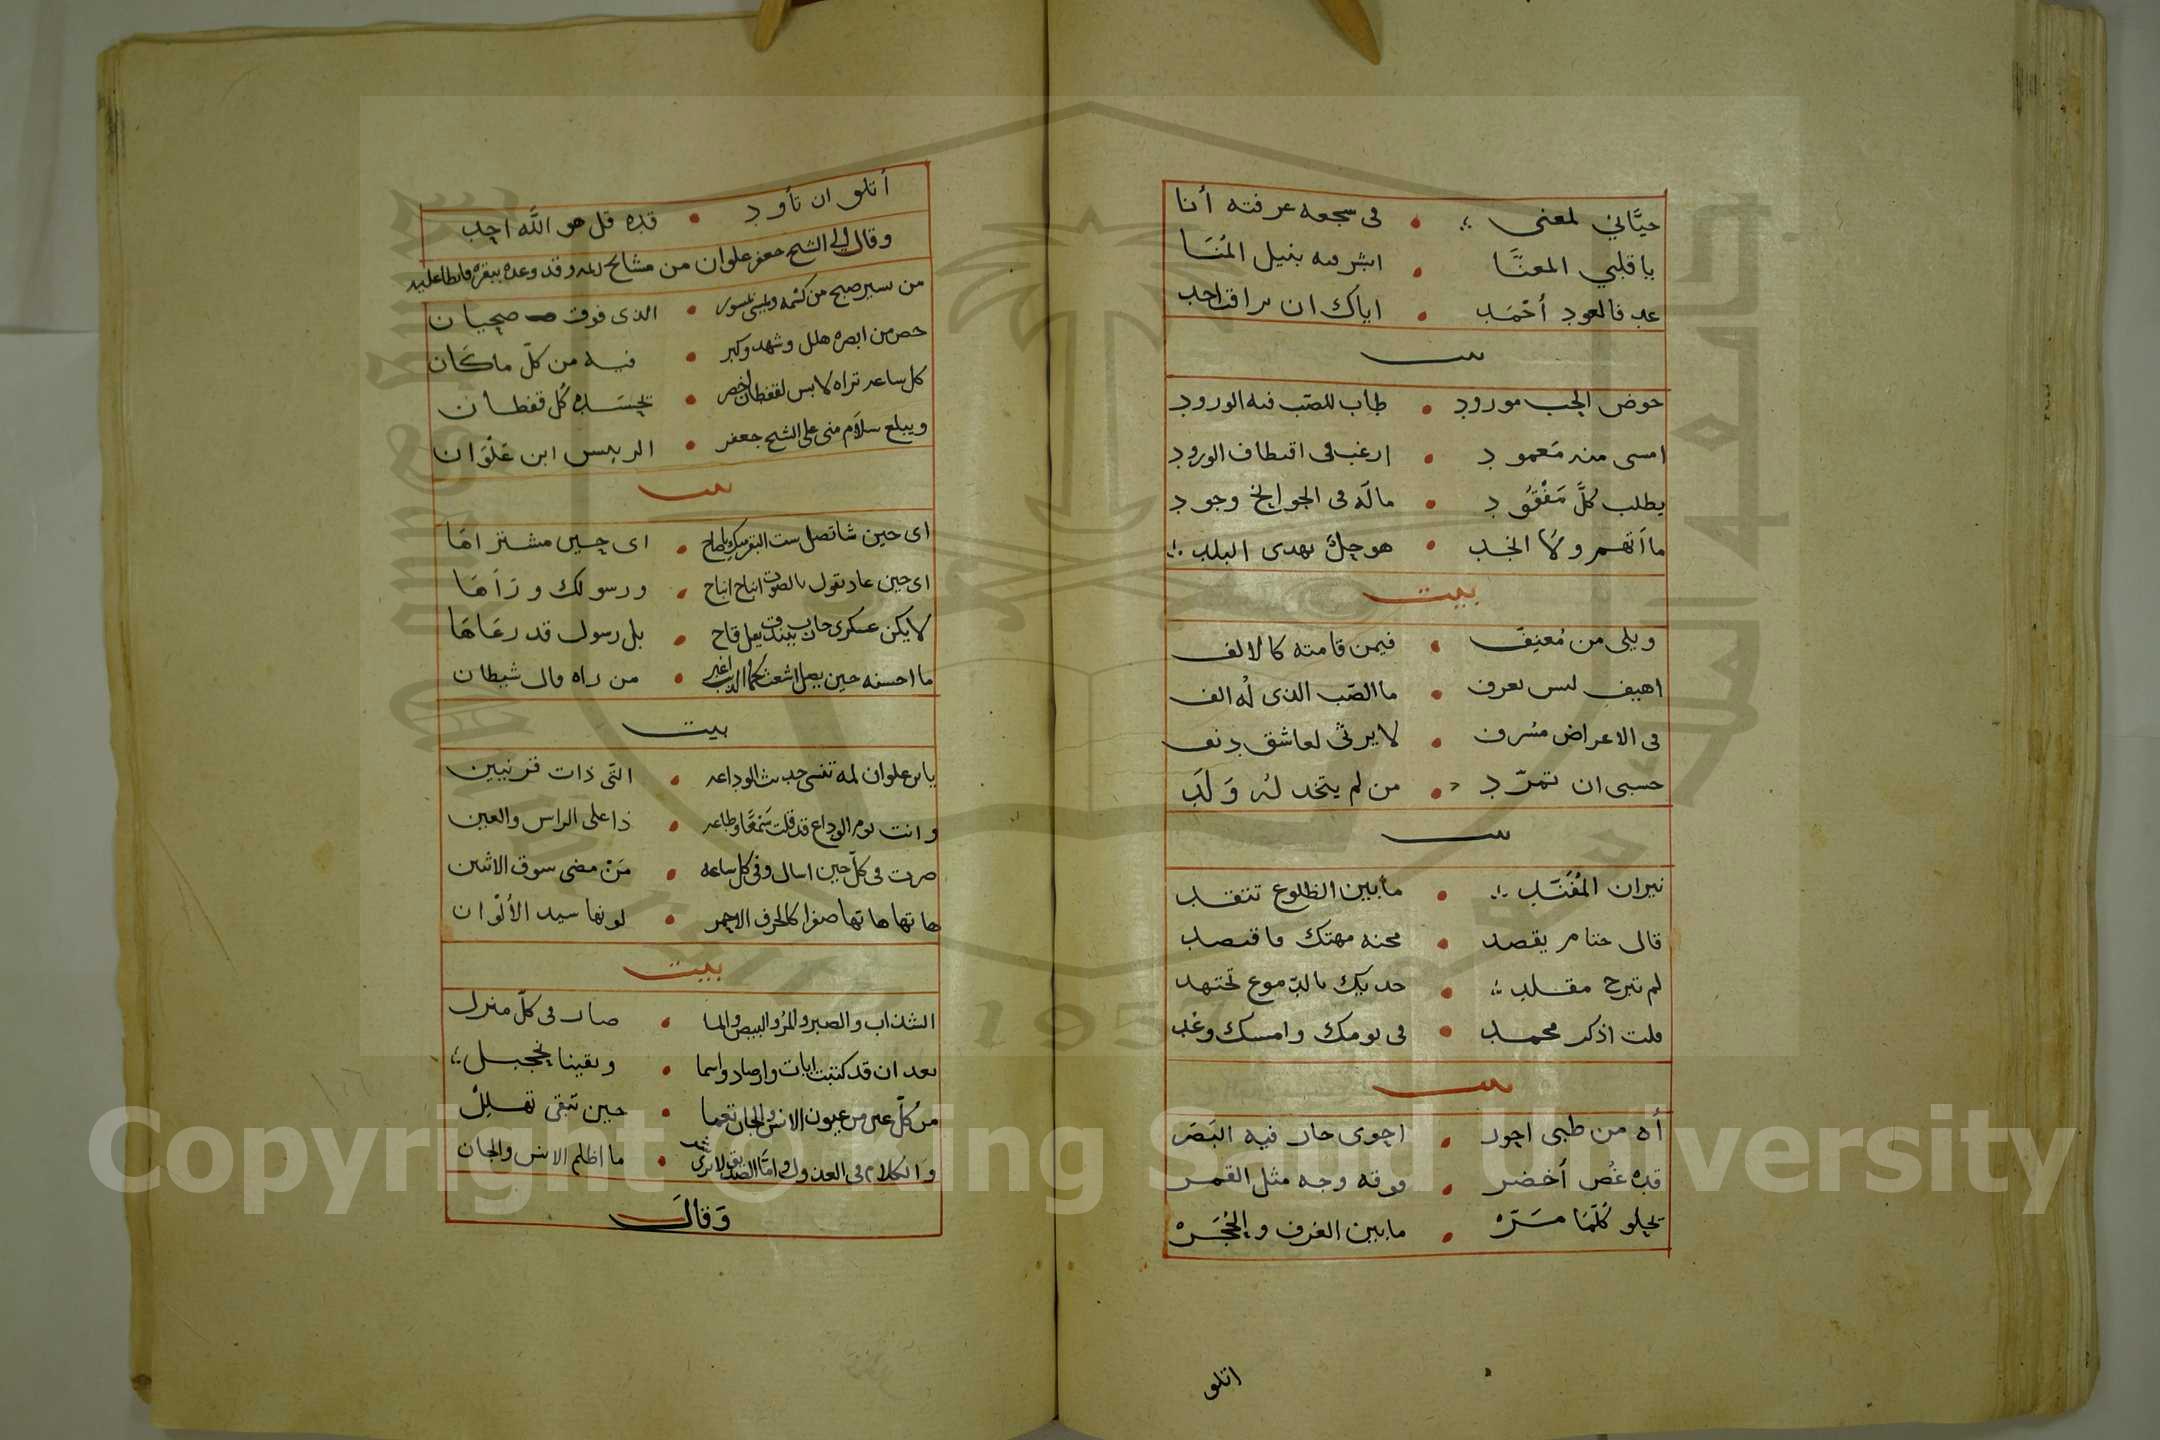 حيَّاني لمعنى • في سجعه عرفته أنا
يا قلبي المعنَّا • ابشر منه بنيل المُنَا
عد فالعود أحْمَد • اياك ان
بيت
حوض الحب مورود • طاب للصّب فيه الورود
امسى منه مَعمود • ارغب في اقتطاف الورود
يطلب كلَّ مَفْقُود • ماله في الجوانح وجود
ما أتهم ولا انجد • هو حلّ بهدى البلد
بيت
ويلى من مُعنِف • فيمن قامته كالالف
اهيف ليس يعرف • ما الصّب الذى لُه الف
في الاعراض مسرف • لا يرثى لعاشق دنف
حسبى ان تمرّد • من لم يتخد له وَلَد
بيت
نيران المُفَنَّد • ما بين الظلوع تتقد
قال حتام يقصد • محنه مهتك ما قتصد
لم تبرح مقلد • خديك بالدّموع تجتهد
قلت اذكر محمد • في يومك وامسك وغد
بيت
أه من ظبى احور • احوى حار فيه البَصَر
قده غُص أخضر • فوقه وجه مثل القمر
يحلو كُلّمَا مَرّه • ما بين الغرف والحُجَرْ
اتلو
أتلو ان تأود • قده قل هو اللَّه احد
وقال الى الشيخ جعفر علوان من مشائخ وقد وعده ببقره فابطا عليه
من سير صبح من • الذى فوق صحيان
من ابصره هلل وشهد وكبر • فيه من كلّ ما كان
كل ساعه تراه لابس لقفطان اخضر • يحسَده كُل قفطان
ويبلغ سلاَم منى على الشيخ جعفر • الرييس ابن عَلْوَان
بيت
اى حين شا تصل ست البقر • اى حين مشتراهَا
اى حين عاد تقول بالصوت انباح انباح • ورسولك ورَاهَا
لا يكن عسكرى • بل رسول قد رعَاهَا
ما احسنه حين يصل اشعث اغبر • من راه قال شيطان
بيت
يا بن علوان لمه تنسى حديث الوداعه • التّى ذات قرنيين
وانت يوم الوداع قد قلت سَمْعًا وطاعه • ذا على الراس والعين
صرت في كلّ حين اسال وفى كل ساعه • مَنْ مضى سوق الاثنين
هاتها هاتها صفرا كالحرف الاحمر • لونها سيد الألْوَان
بيت
الشذاب والصبر والمُر والبيض والما • صار في كلّ منزل
بعد ان قد كتبت ايات وارصاد واسما • وبقينا نحجبل
من كلّ عين من عيون الانس والجان تعما • حين تبقى تهللْ
والكلام فى العذول واما الصديق • ما اظلم الانس والجان
وَقَالَ
Copyright © King Saud University
1957